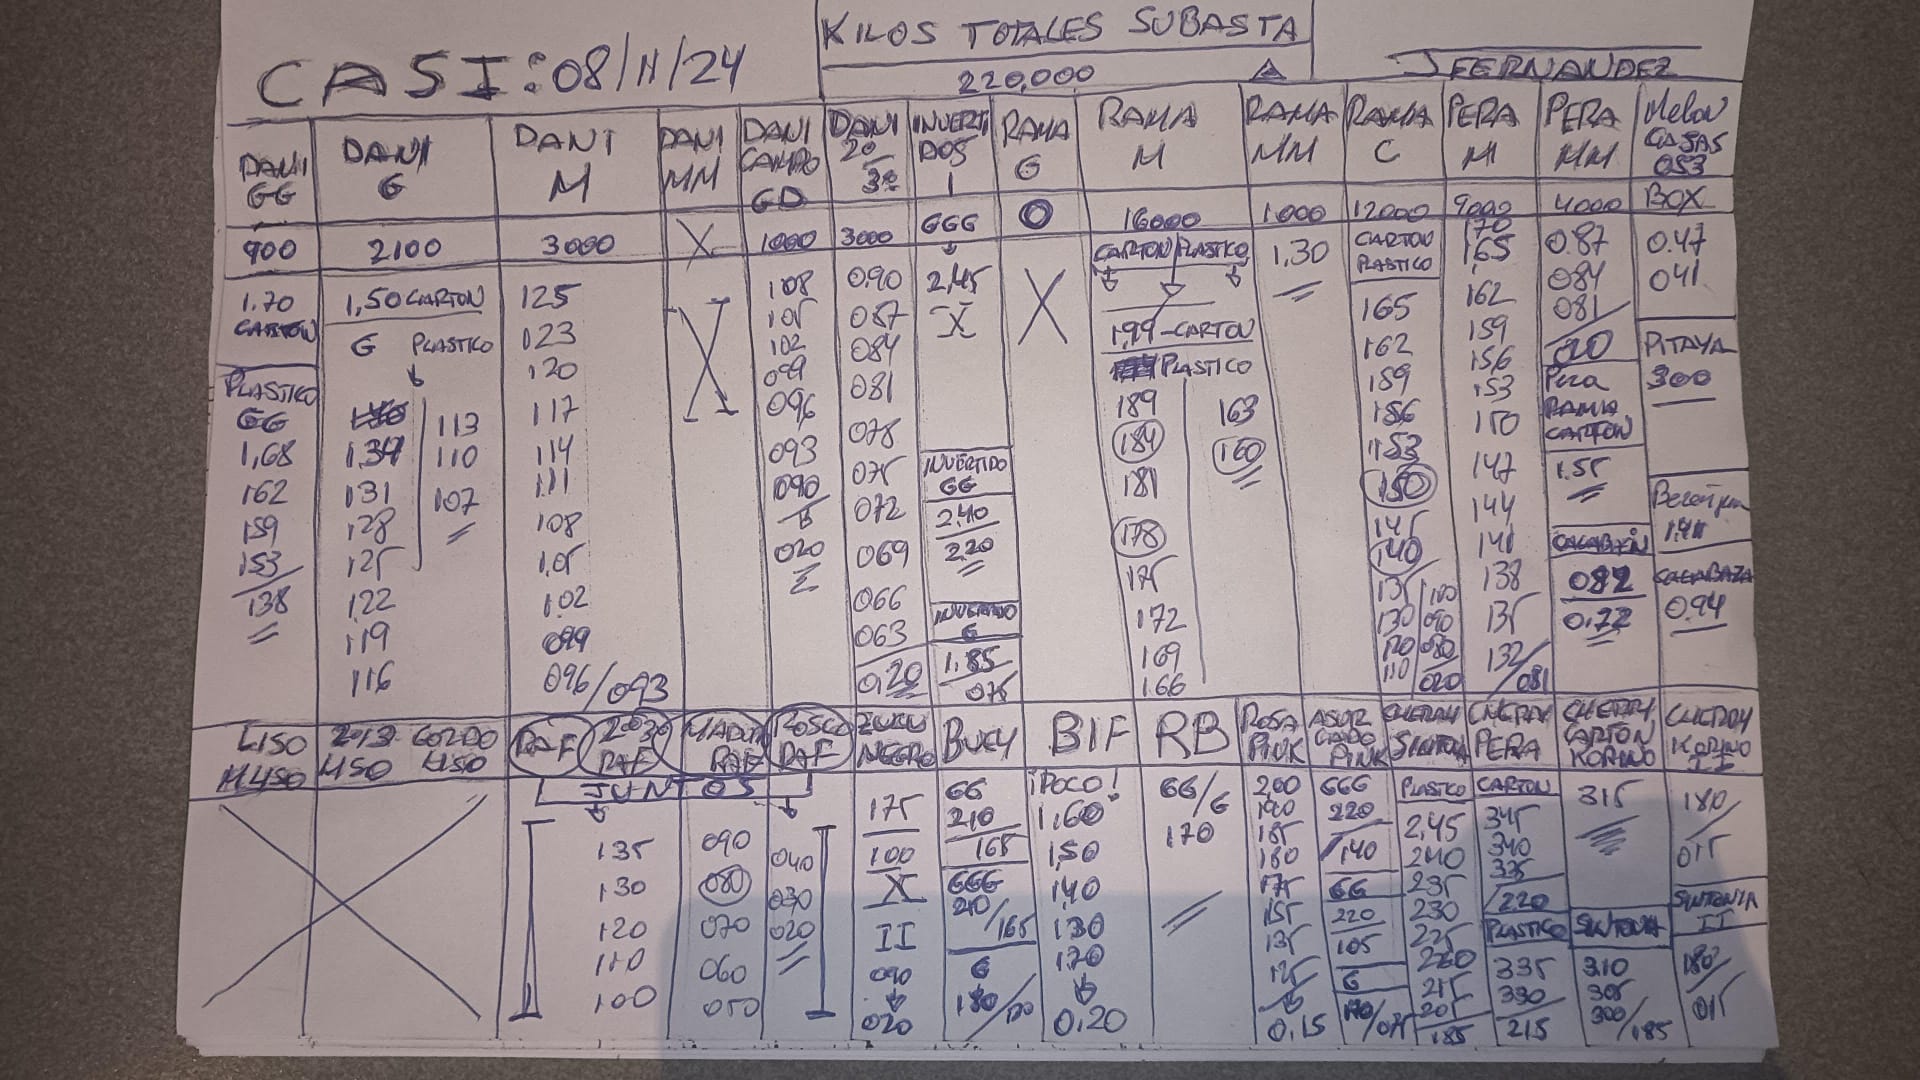 KILOS TOTALES SUBASTA
CASI: 08/11/24
220,000
JFERNANDEZ
DANI GG
900
1.70
CARTON
PLASTICO
GG
1,68
162
159
153
138
DANI G
2100
1,50 CARTON
G PLASTICO
134
131
128
125
122
119
116
113
110
107
DANI M
3000
125
123
120
117
114
111
108
1.05
1.02
099
096/093
DANI MM
X
DANI CAMPO GD
1000
108
105
102
099
096
093
090
020
DANI 20 3ª
3000
0.90
087
084
081
078
075
072
069
066
063
0,20
INVERTIDOS
GGG
2,45
X
INVERTIDO
GG
2.40
2.20
INVERTIDO
G
1.85
075
RAMA G
0
X
RAMA M
16000
CARTON PLASTICO
1,99-CARTON
PLASTICO
189
184
181
178
175
172
169
166
163
160
RAMA MM
1000
1.30
RAMA C
12000
CARTON
PLASTICO
165
162
159
156
153
150
145
140
135
130
120
110
100
090
080
020
PERA M
9000
170
165
162
159
156
153
150
147
144
141
138
135
132/081
PERA MM
4000
0.87
084
081
Pera
RAMA
CARTON
1.55
CALABACIN
082
0.72
Melon
CAJAS
053
BOX
0.47
041
PITAYA
300
Berenjena
1.41
CALABAZA
0.94
LISO M LISO
2013 LISO
GORDO LISO
RAF
2030 RAF
MADURO RAF
ROSCO RAF
JUNTOS
135
130
120
110
100
090
080
070
060
050
040
030
020
ZUKU NEGRO
175
100
X
II
090
020
BUEY
GG
210
165
GGG
210/165
G
180/
BIF
¡POCO!
1,60
1,50
1,40
130
120
0,20
RB
GG/G
170
ROSA PINK
200
190
185
180
175
155
135
125
0.15
ASURCADO PINK
GGG
220
140
GG
220
105
G
CHERRY SINTONIA
PLASTICO
2,45
240
235
230
225
220
215
205
185
CHERRY PERA
CARTON
345
340
335
220
PLASTICO
335
330
215
CHERRY CARTON KORINO
315
SINTONIA
310
305
300/185
CHERRY KORINO II
180/
015
SINTONIA II
180/
015